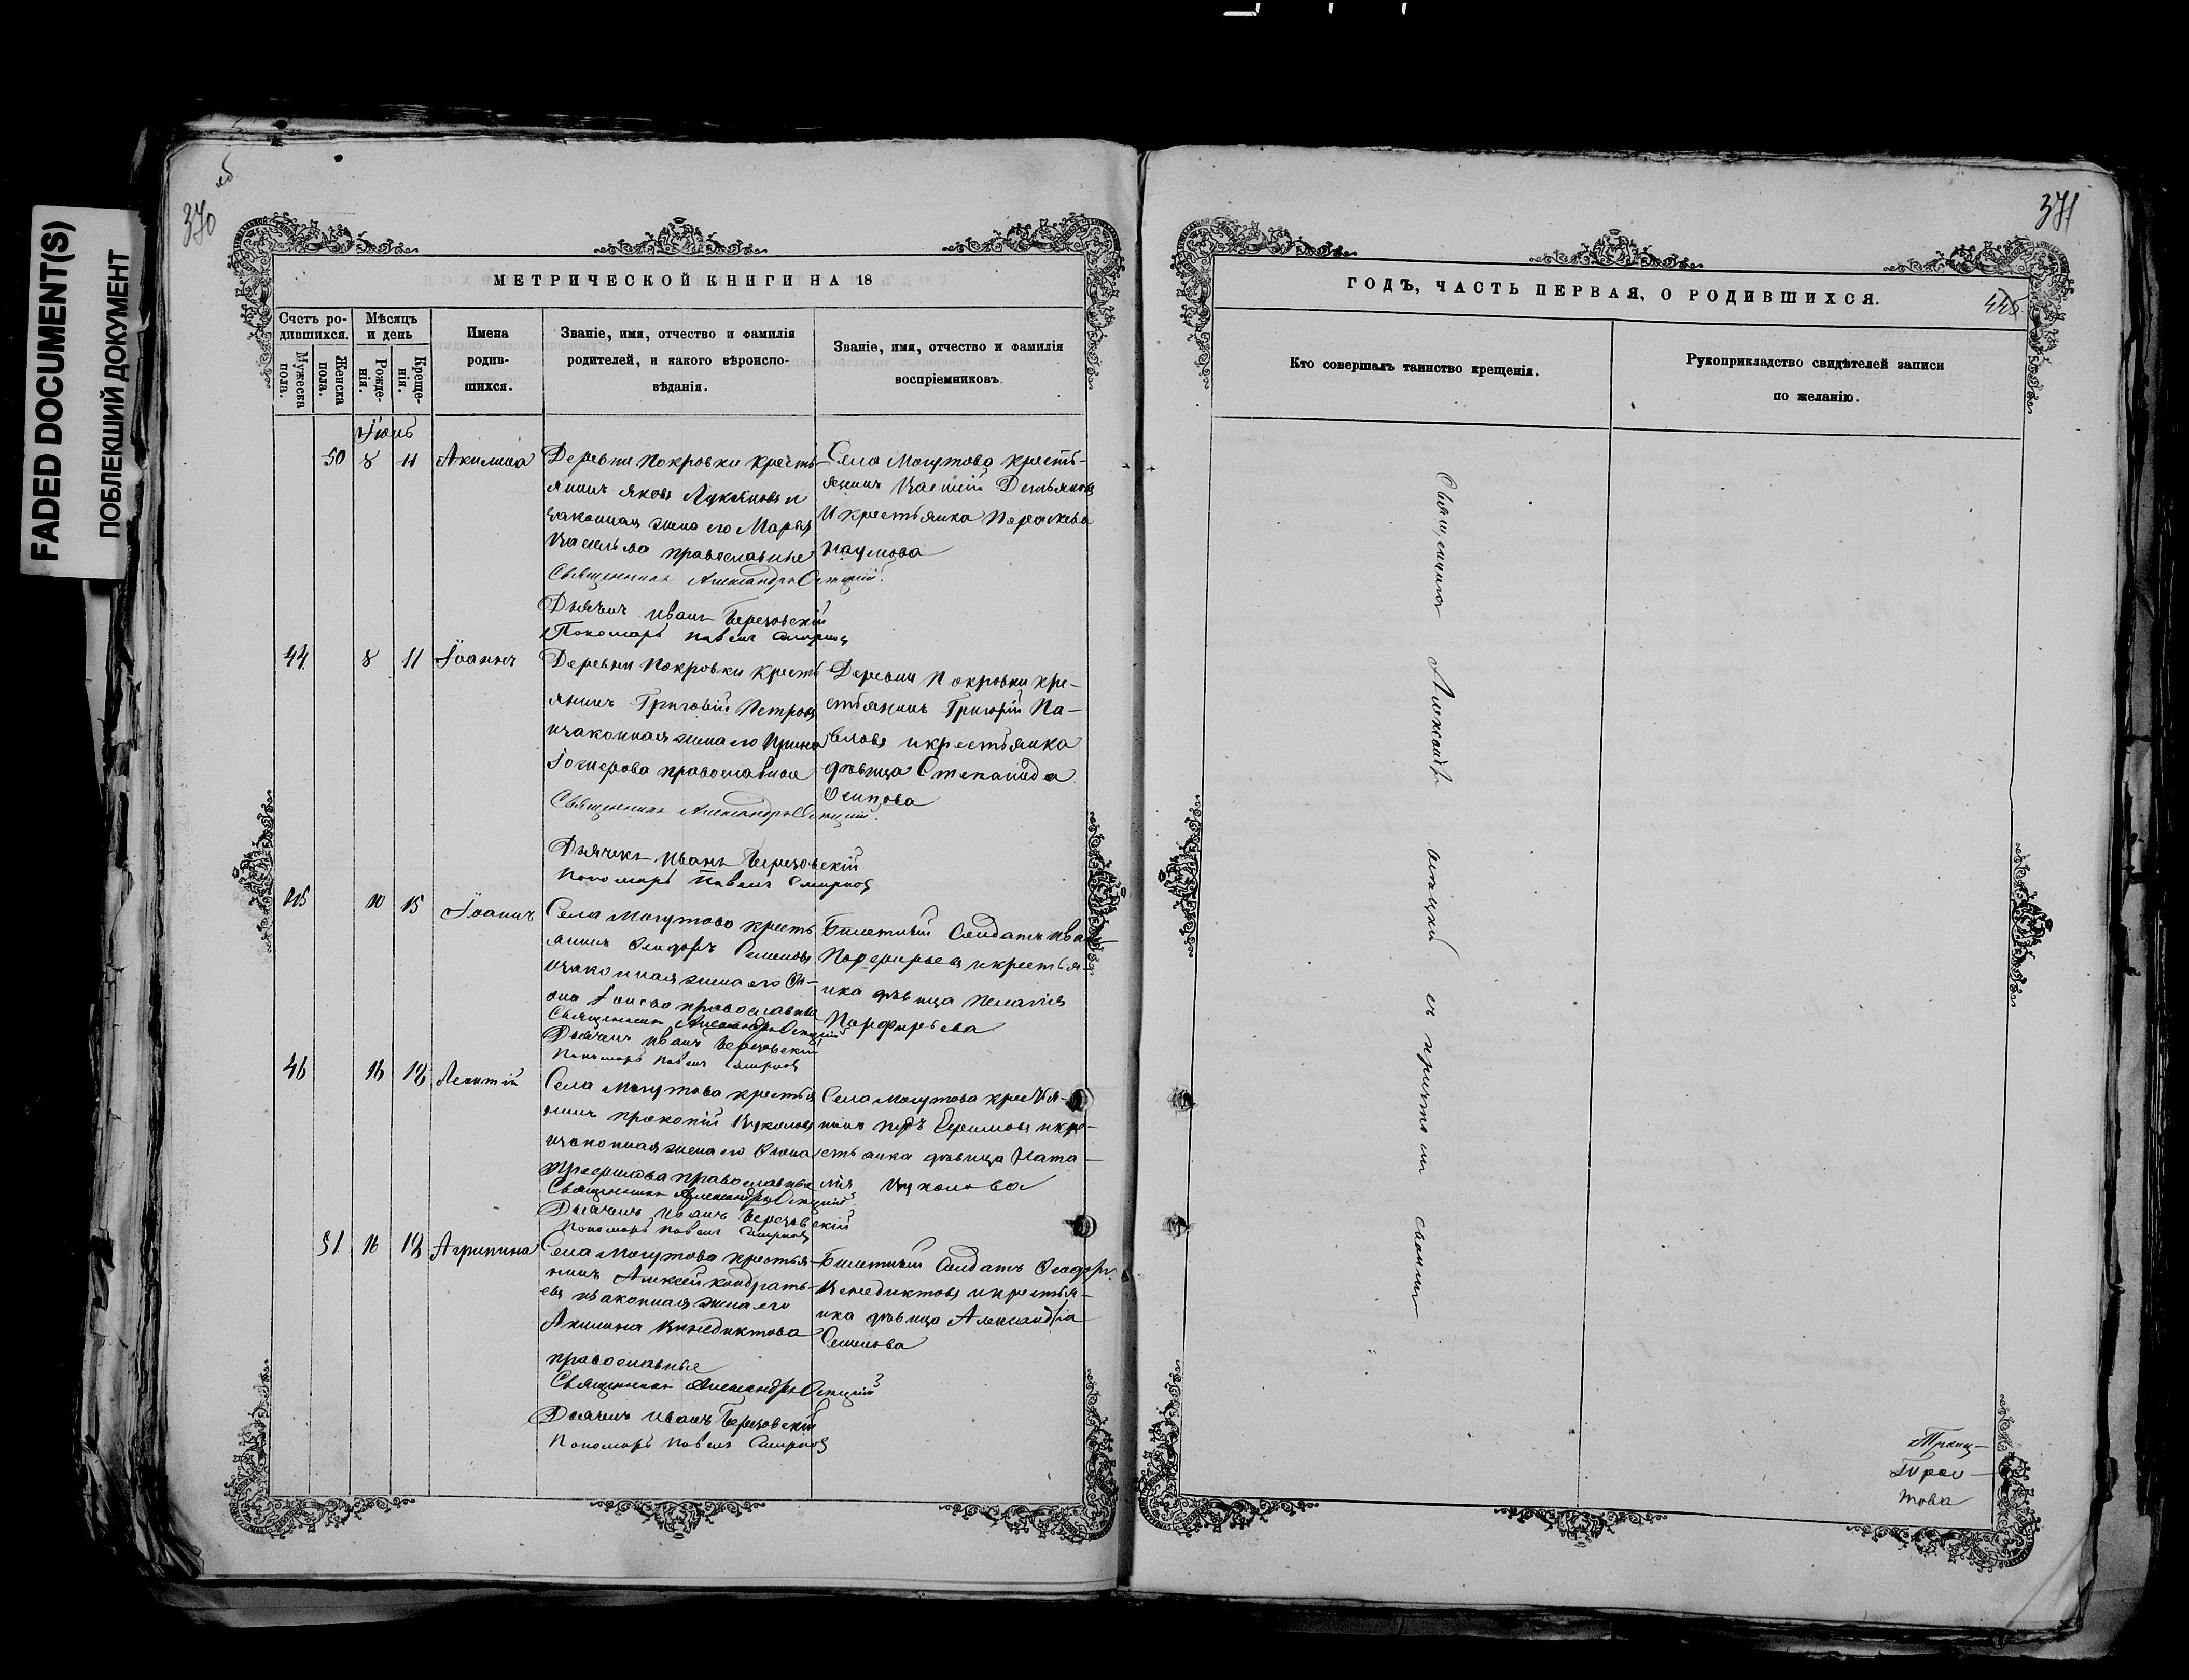 FADED DOCUMENT(S)
ПОБЛЕКШИЙ ДОКУМЕНТ
370
об
МЕТРИЧЕСКОЙ КНИГИ НА 18
Счетъ ро-
дившихся.
Мужеска
пола.
Женска
пола.
Мѣсяцъ
и день
Рожде-
нія.
Креще-
нія.
Имена
родив-
шихся.
Званіе, имя, отчество и фамилія
родителей, и какого вѣроиспо-
вѣданія.
Званіе, имя, отчество и фамилія
воспріемниковъ.
50 8 11
Деревни Покровки кресть-
янинъ Яковъ Лукьяновъ и
законная жена его Марья
Васильева православные
Священникъ Александръ
Дьячекъ Иванъ Березовскій
Пономарь Павелъ Смирновъ
Села Могутова кресть-
янинъ
и крестьянка Параскева
Наумова
44 8 11 Іоаннъ
Деревни Покровки кресть
янинъ Григорій Петровъ
и законная жена его Ирина
православные
Священникъ Александръ
Дьячекъ Иванъ Березовскій
Пономарь Павелъ Смирновъ
Деревни Покровки кре-
стьянинъ Григорій Па-
вловъ и крестьянка
дѣвица Степанида
Осипова
45 10 15 Іоаннъ
Села Могутова кресть
янинъ Ѳеодоръ Семеновъ
и законная жена его
православные
Священникъ Александръ
Дьячекъ Иванъ Березовскій
Пономарь Павелъ Смирновъ
Билетный Солдатъ Иванъ
Порфирьевъ и крестья-
нка дѣвица Пелагія
Порфирьева
46 16 18 Леонтій
Села Могутова крестья
нинъ Прокопій Вуколовъ
и законная жена его
православные
Священникъ Александръ
Дьячекъ Иванъ Березовскій
Пономарь Павелъ Смирновъ
Села Могутова крестья-
нинъ и кре-
стьянка дѣвица Ната-
лія Вуколова
51 16 18 Агрипина
Села Могутова крестья-
нинъ Алексѣй Кондрать-
евъ и законная жена его
Акилина Венедиктова
православные
Священникъ Александръ
Дьячекъ Иванъ Березовскій
Пономарь Павелъ Смирновъ
Билетный Солдатъ Ѳеодоръ
Венедиктовъ и крестья-
нка дѣвица Александра
Семенова
371
ГОДЪ, ЧАСТЬ ПЕРВАЯ, О РОДИВШИХСЯ.
Кто совершалъ таинство крещенія.
Рукоприкладство свидѣтелей записи
по желанію.
Священникъ Александръ съ причтомъ своимъ